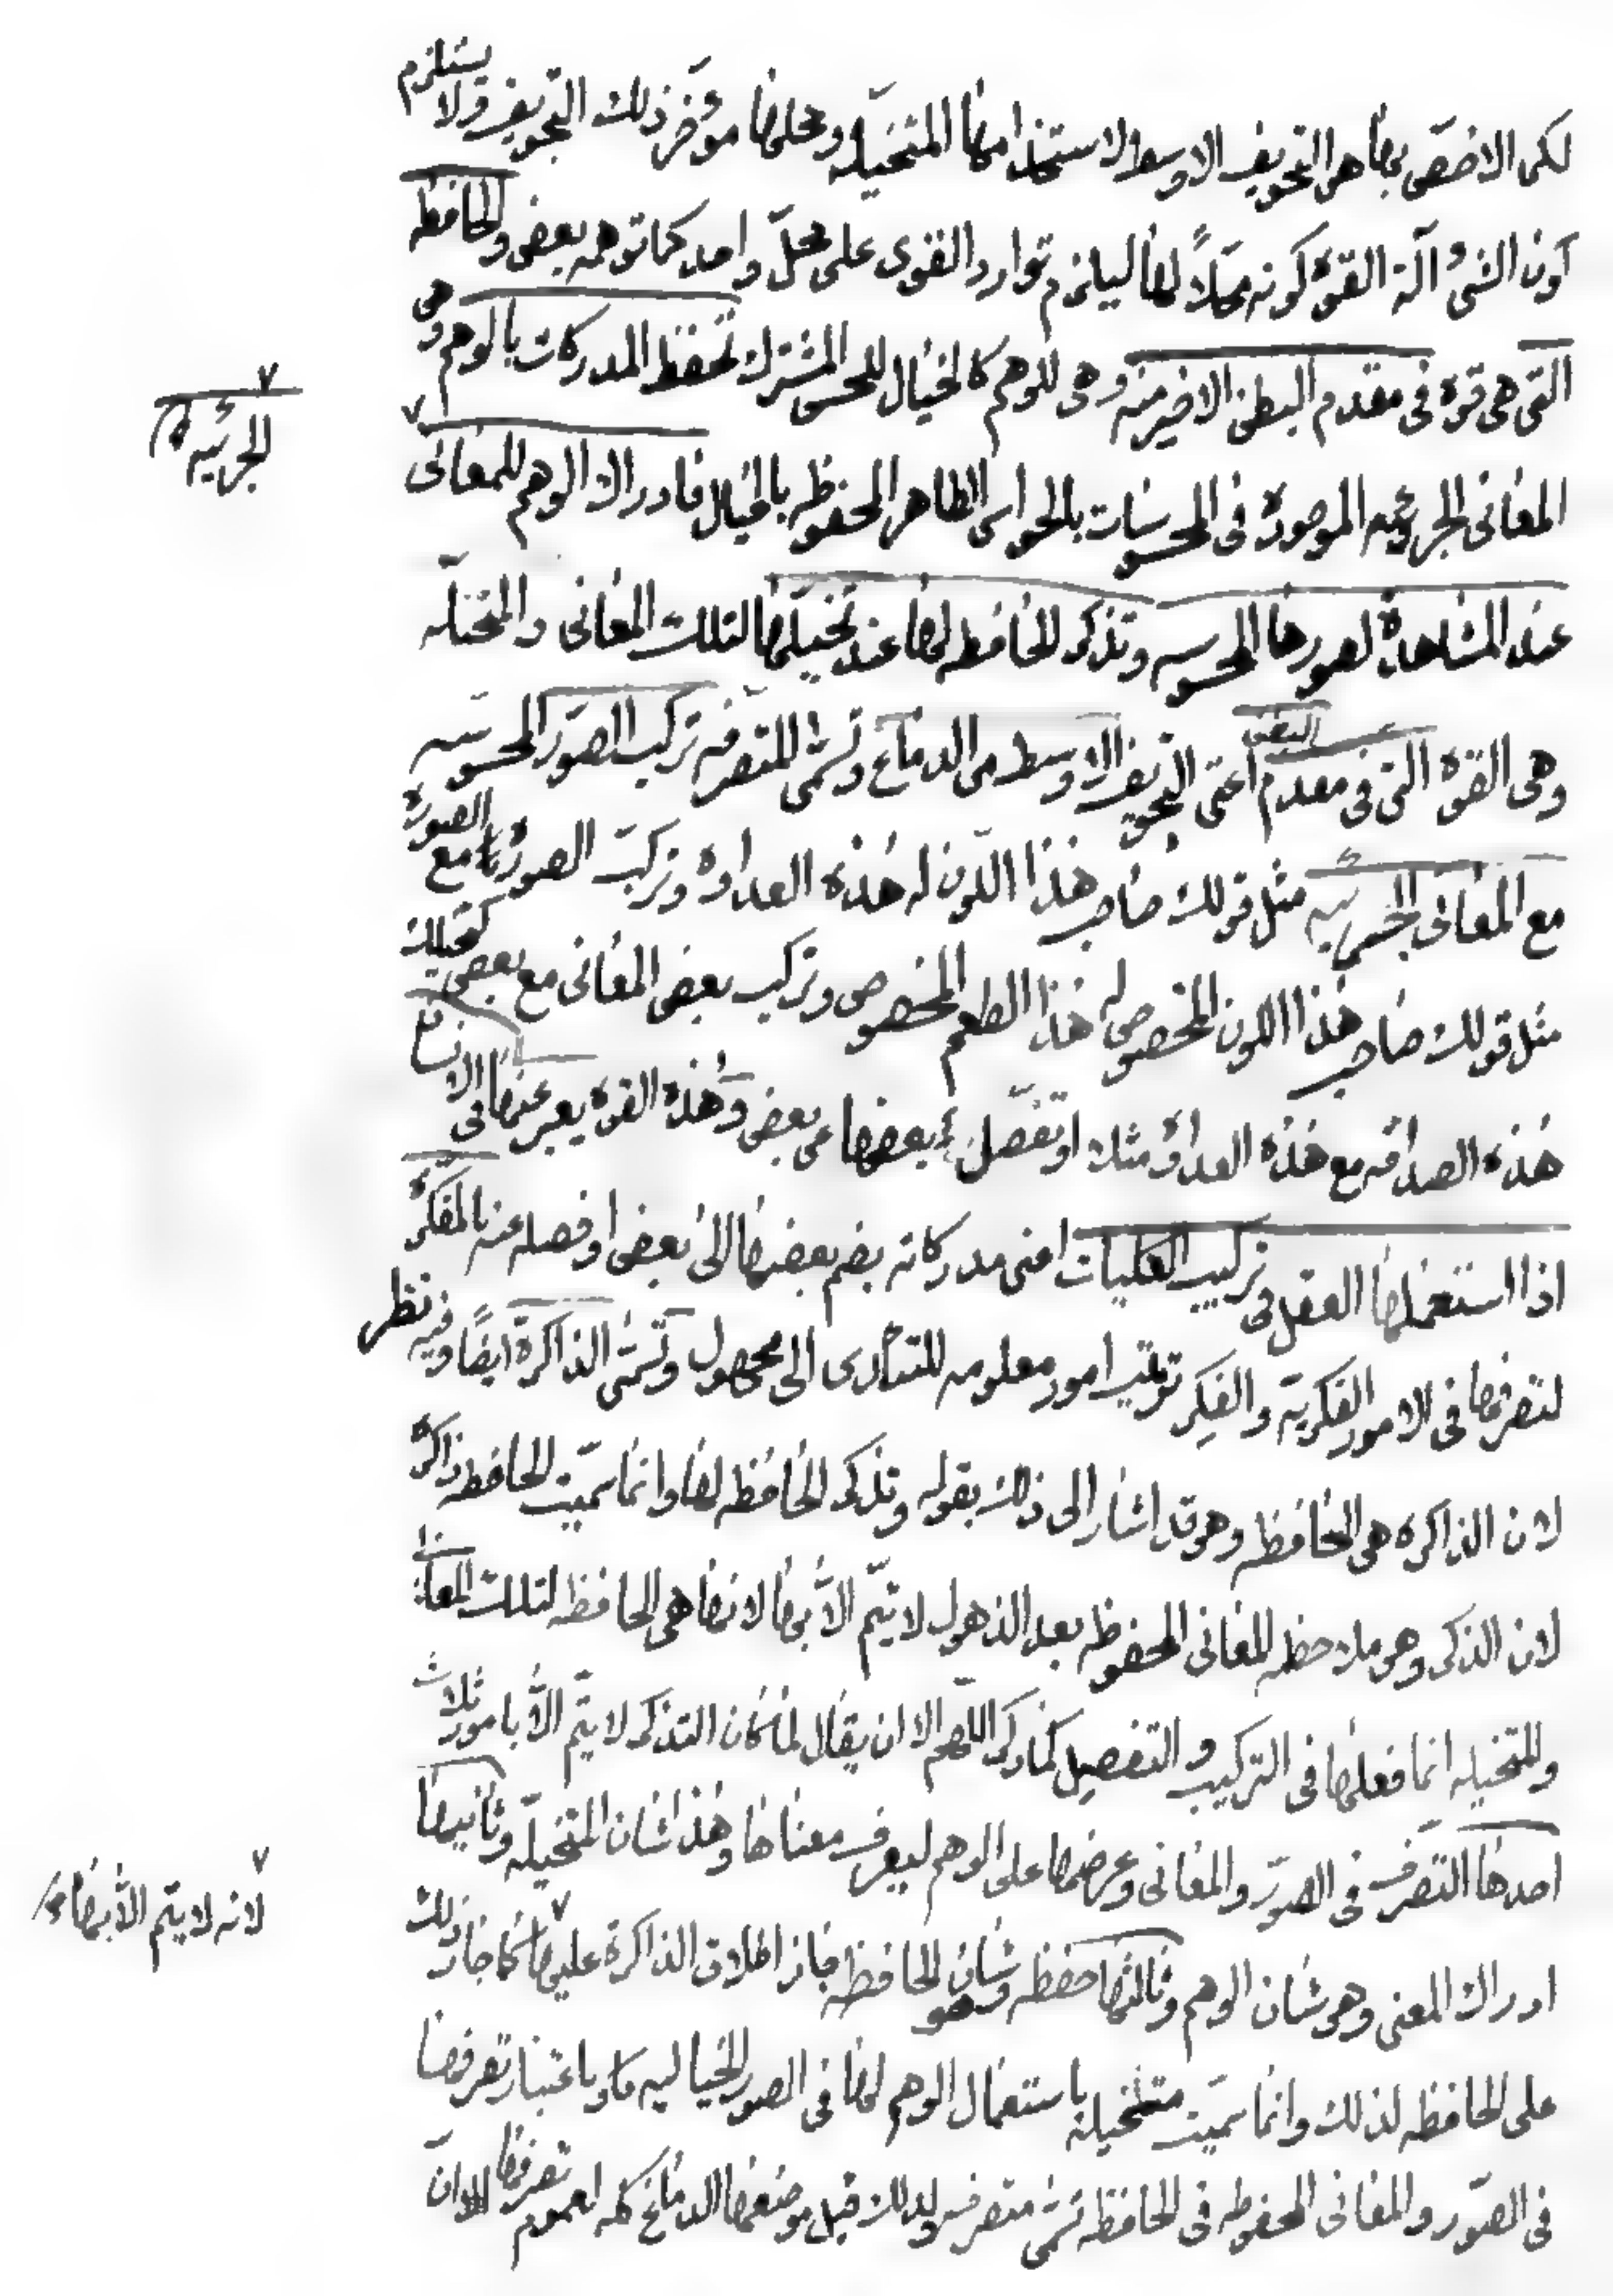 لكن الاخص بها هو التجويف الاوسط لاستخدامها المتخيله ومحلها مؤخر ذلك التجويف ولا يستلزم
كون الشئ آلة القوة كونه محلاً لها ليلزم توارد القوى على محلّ واحد كما توهمه بعض والحافظه
التى هى قوة فى مقدم البطن الاخير منه وهى للوهم كالخيال للحس المشترك تحفظ المدركات بالوهم وهى
المعانى الجزئيه الموجودة فى المحسوسات بالحواس الظاهر المحفوظه بالخيال فادراك الوهم للمعانى
الجزئيه
عند المشاهدة لصورها المحسوسه وتذكر الحافظه لها عند تخيلها لتلك المعانى والمتخيلّه
وهى القوة التى فى مقدم البطن اعنى التجويف الاوسط من الدماغ وتسمى المتصرفه تركيب الصور المحسوسه
مع المعانى الجزئيه مثل قولك صاحب هذا اللون له هذه العداوة وتركيب الصورة مع الصورة
مثل قولك صاحب هذا اللون المخصوص له هذا الطعم المخصوص وتركيب بعض المعانى مع بعض كقولك
هذه الصداقه مع هذه العداوة مثلا او تفصّل بعضها عن بعض وهذه القوة يعبر عنها فى الانسان
اذا استعملها العقل فى تركيب الكليات اعنى مدركاته بضم بعضها الى بعض او فصله عنه بالمفكّرة
لتصرفها فى الامور الفكرية والفكر ترتيب امور معلومه للتأدى الى مجهول وتسمّى الذاكرة ايضًا وفيه نظر
لان الذاكرة هى الحافظه وهو قد اشار الى ذلك بقوله وتذكر الحافظه لها وانما سمّيت الحافظه ذاكرة
لان الذكر وهو ملاحظه المعانى المحفوظه بعد الذهول لا يتمّ الاّ بها لانها هى الحافظه لتلك المعانى
والمتخيله انما فعلها فى التركيب والتفصيل كما ذكر اللهم الا ان يقال لما كان التذكر لا يتمّ الاّ بامور ثلاث
احدها التصرف فى الصور والمعانى وعرضها على الوهم ليعرف معناها وهذا شان المتخيلّه وثانيها
ادراك المعنى وهو شان الوهم وثالثها حفظه وهو شان الحافظه جاز اطلاق الذاكرة عليها كما جاز ذلك
لانه لا يتم الاّ بها
على الحافظه لذلك وانما سمّيت متخيله باستعمال الوهم لها فى الصور الخياليه وباعتبار تصرفها
فى الصّور والمعانى المحفوظه فى الحافظه تسمّى متصرفه ولذلك قيل موضعها الدماغ كله لعموم تصرفها الا ان